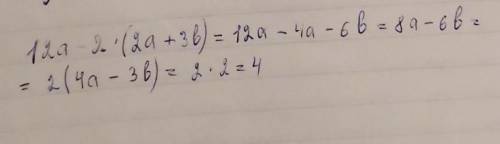 12a - 2 · (2a + 3b) = 12a - 4a - 6b = 8a - 6b =
= 2(4a - 3b) = 2 · 2 = 4